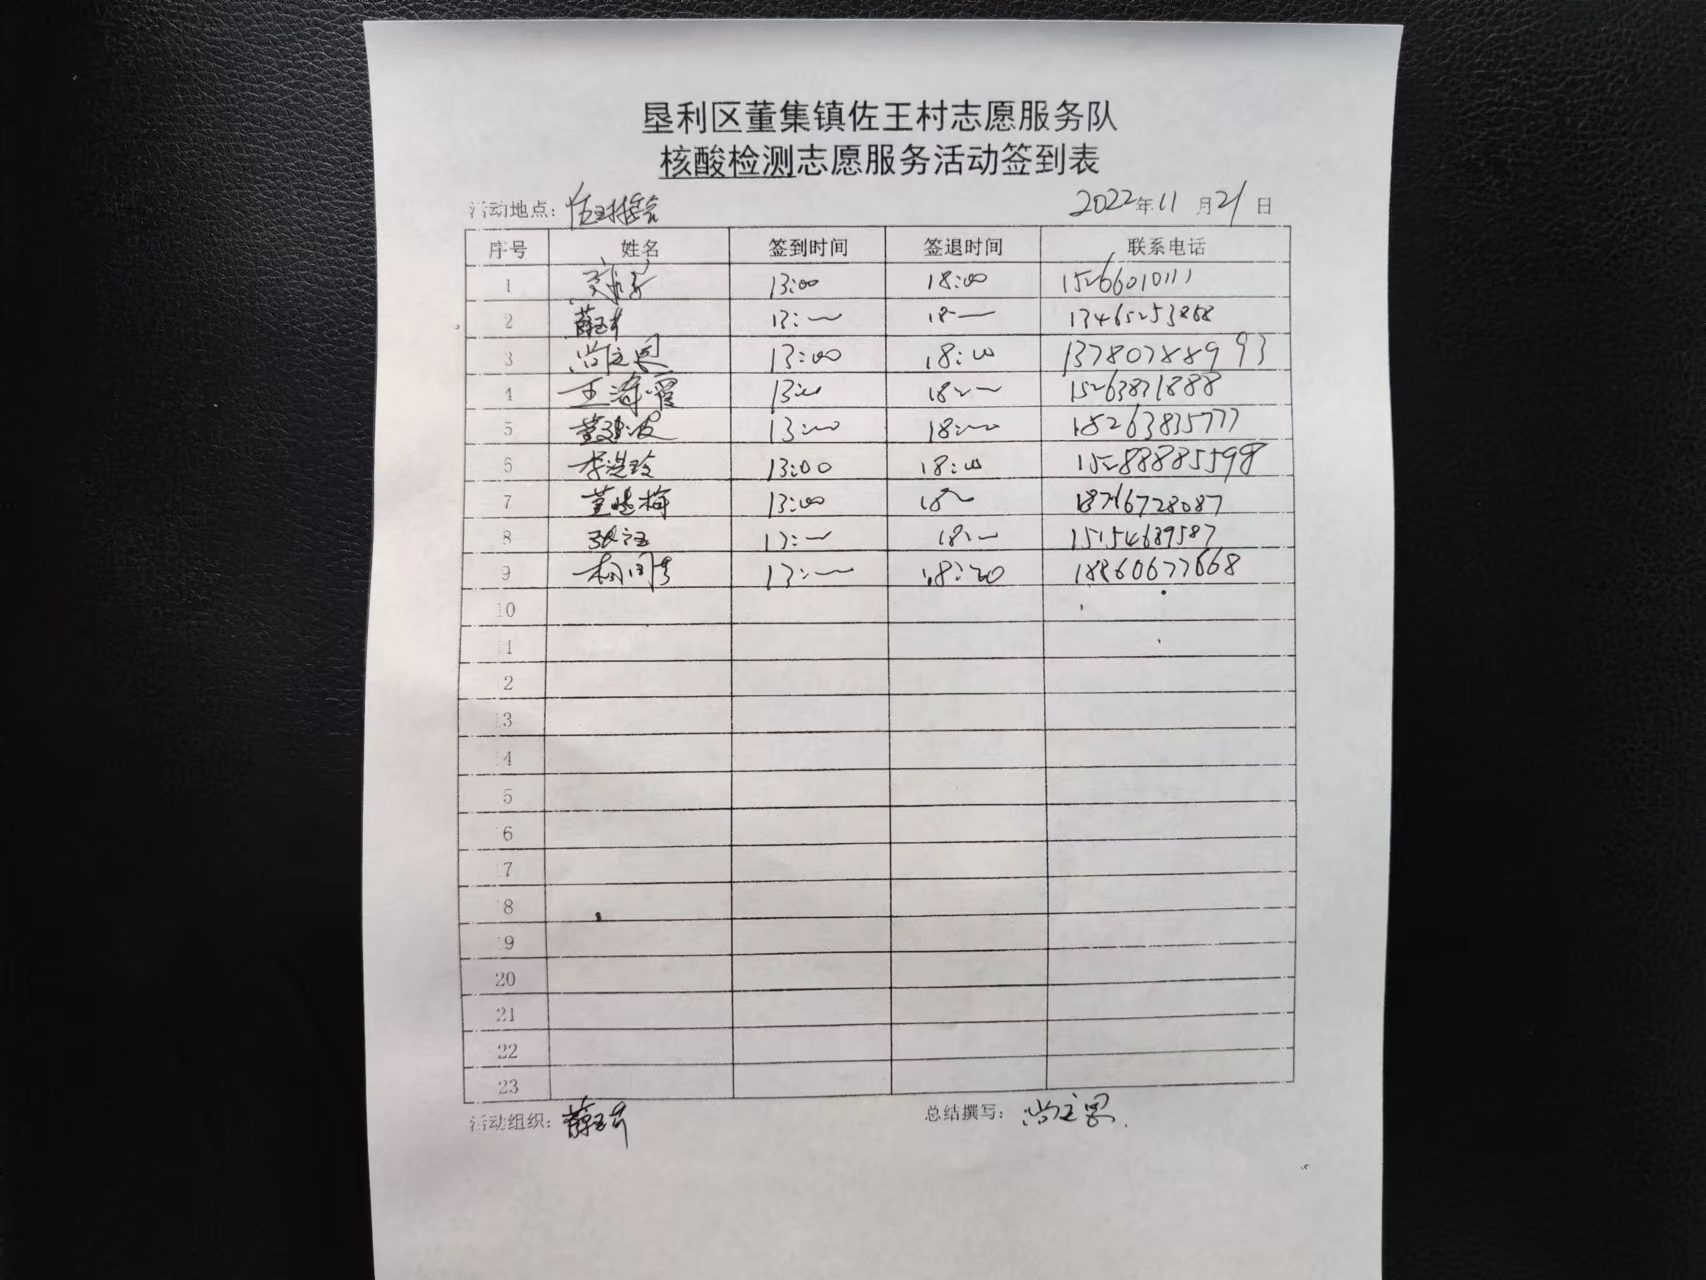 垦利区董集镇佐王村志愿服务队
核酸检测志愿服务活动签到表
活动地点: 2022年11月21日
序号 姓名 签到时间 签退时间 联系电话
1 13:00 18:00 15266010111
2 薛玉 13:00 18:00 13465253868
3 尚立恩 13:00 18:00 13780788993
4 王海霞 13:00 18:00 15263871888
5 董建波 13:00 18:00 18263835777
6 李洪玲 13:00 18:00 15288885598
7 董晓梅 13:00 18:00 18766728087
8 张 13:00 18:00 15154689587
9 杨 13:00 18:00 18860677668
10
11
12
13
14
15
16
17
18
19
20
21
22
23
活动组织: 薛玉 总结撰写: 尚立恩